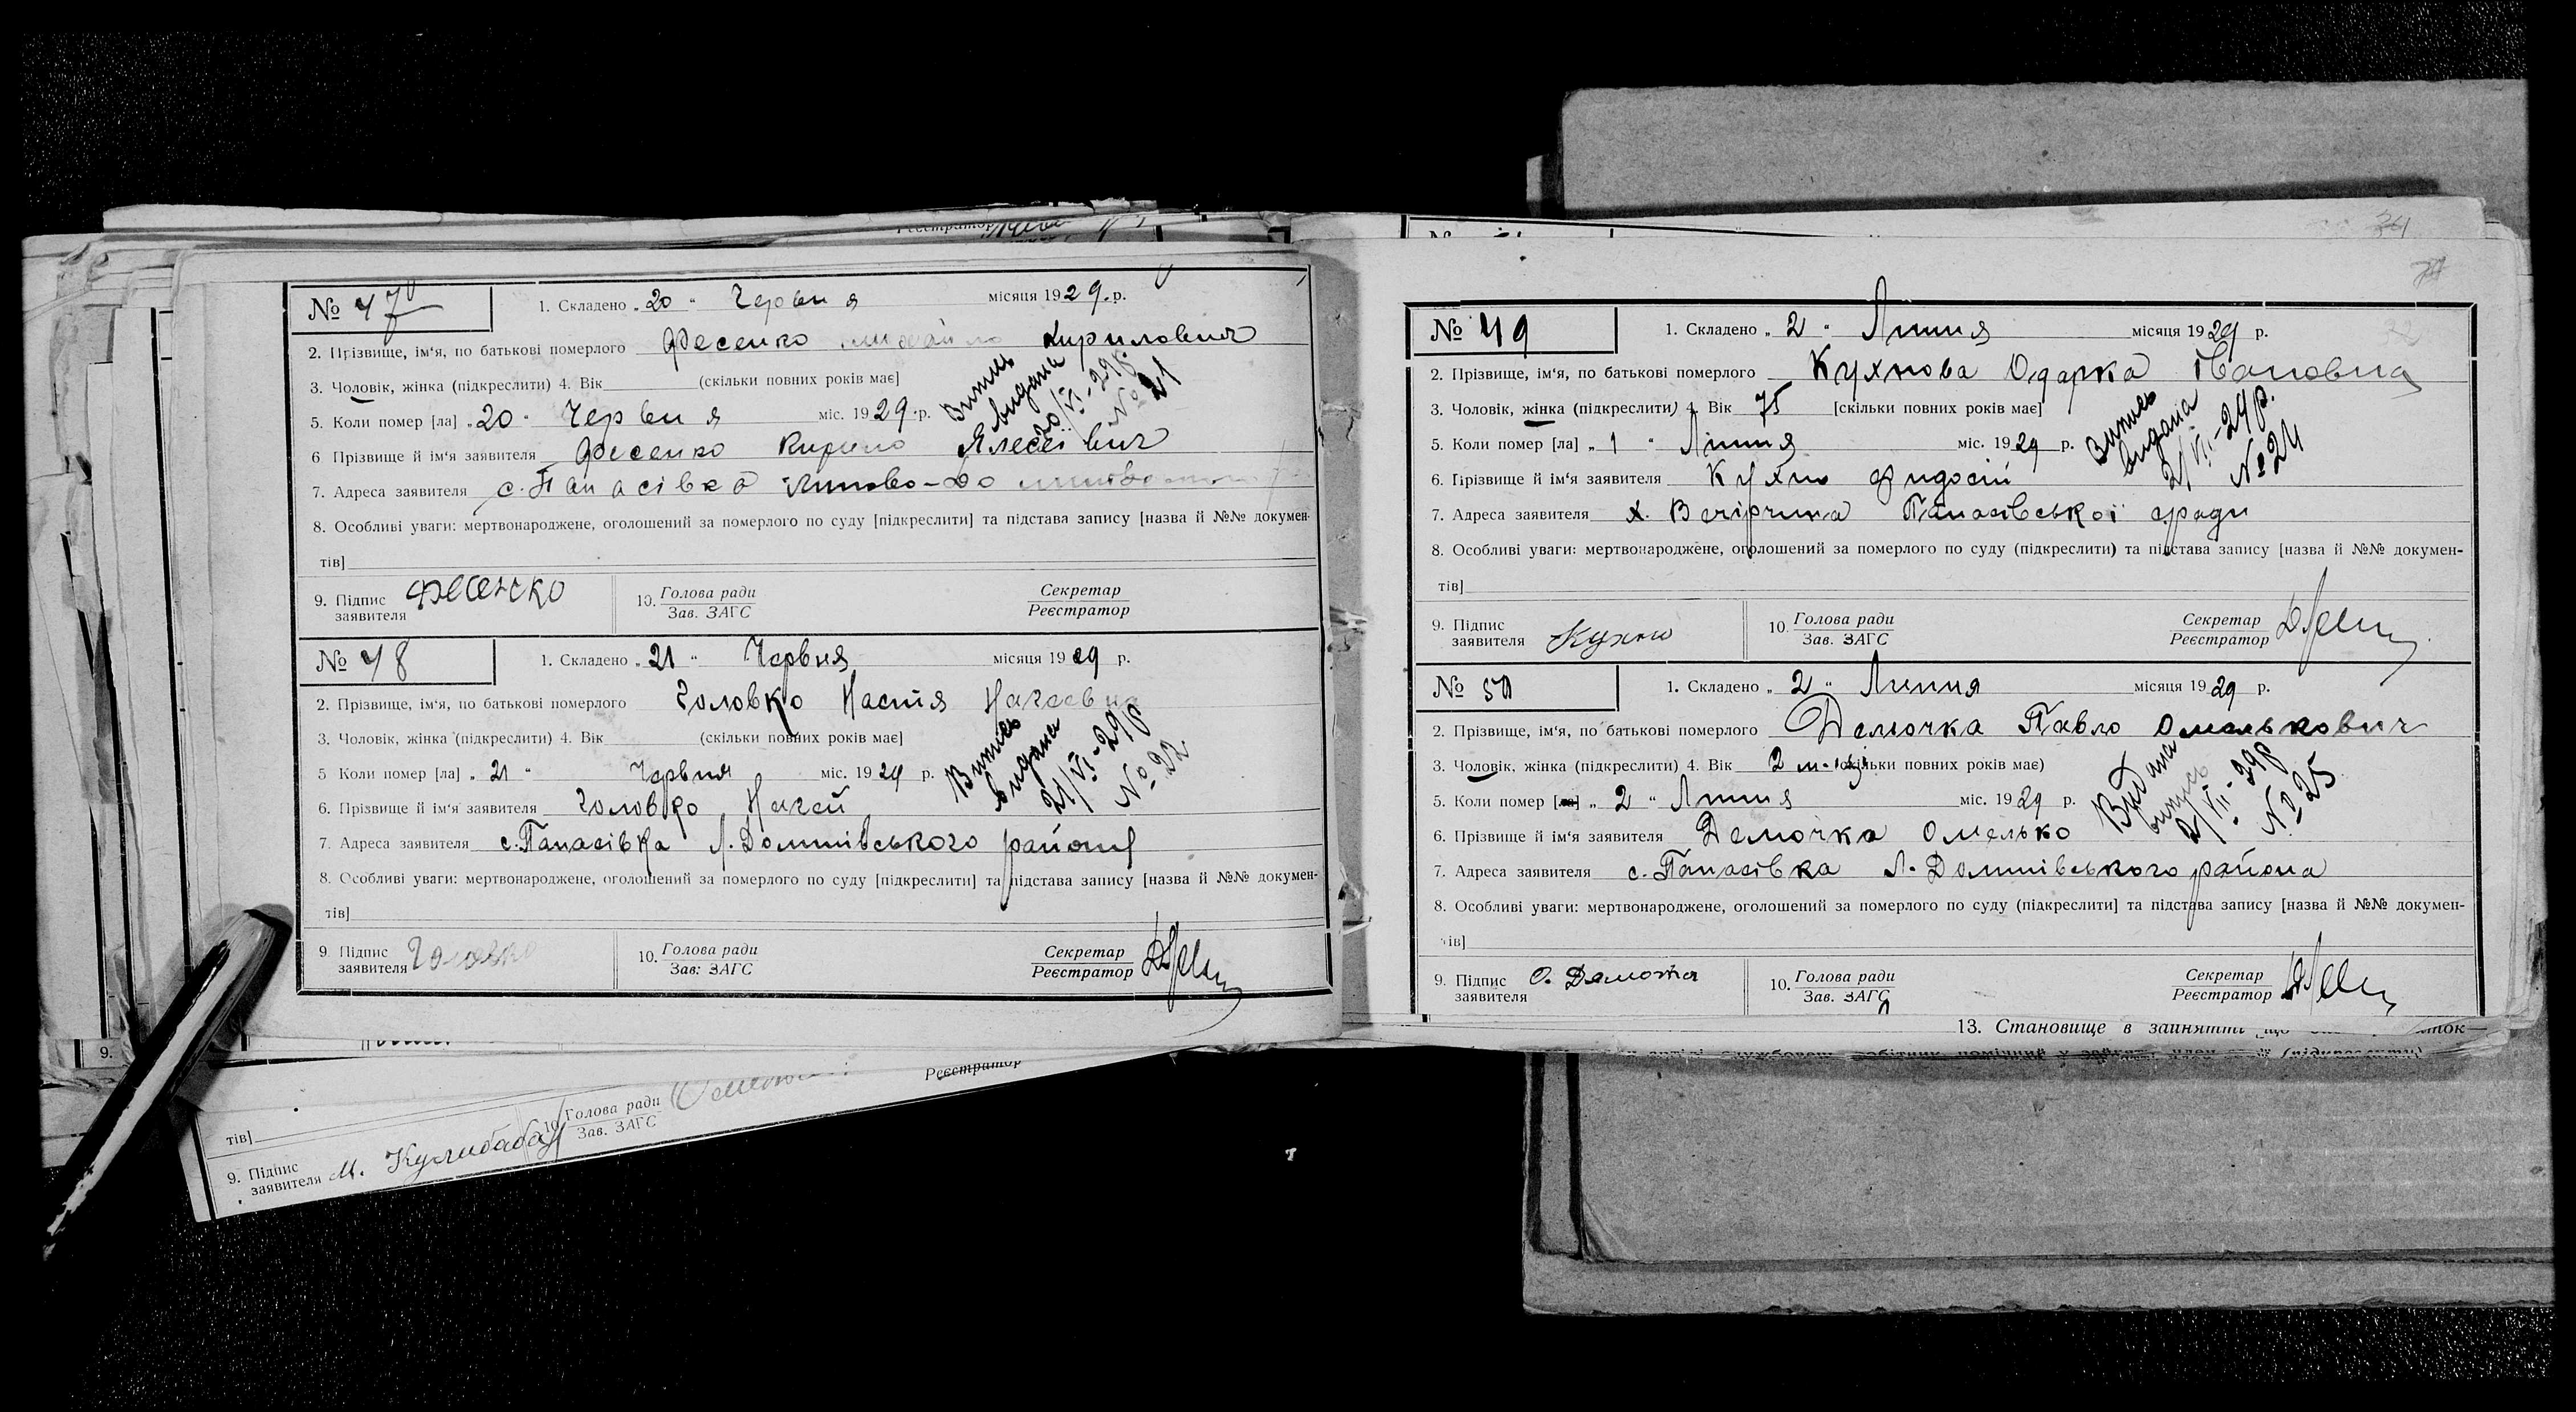 № 47
1. Складено „ 20 “ Червня місяця 1929. р.
2. Прізвище, ім‘я, по батькові померлого Фесенко Михайло Кирилович
3. Чоловік, жінка (підкреслити) 4. Вік (скільки повних років має]
5. Коли помер [ла] „ 20 “ Червня міс. 1929. р.
Витись видана 20/VI-29р. № 21
6 Прізвище й ім‘я заявителя Фесенко Кирило
7. Адреса заявителя с. Панасівка
8. Особливі уваги: мертвонароджене, оголошений за померлого по суду [підкреслити] та підстава запису [назва й №№ докумен-
тів]
9. Підпис заявителя Фесенко
10. Голова ради Зав. ЗАГС
Секретар Реєстратор
№ 48
1. Складено „ 21 “ Червня місяця 1929 р.
2. Прізвище, ім‘я, по батькові померлого Головко Настя
3. Чоловік, жінка (підкреслити) 4. Вік (скільки повних років має]
5 Коли помер [ла] „ 21 “ Червня міс. 1929 р.
Витись видана 21/VI-29р № 22.
6. Прізвище й ім‘я заявителя Головко
7. Адреса заявителя с. Панасівка Л. Долинівського района
8. Особливі уваги: мертвонароджене, оголошений за померлого по суду [підкреслити] та підстава запису [назва й №№ докумен-
тів]
9. Підпис заявителя Головко
10. Голова ради Зав: ЗАГС
Секретар Реєстратор
тів]
9. Підпис заявителя М. Кулибаба
10. Голова ради Зав. ЗАГС
Реєстратор
34
№ 49
1. Складено „ 2 “ Липня місяця 1929 р.
2. Прізвище, ім‘я, по батькові померлого Кухнова Одарка Івановна
3. Чоловік, жінка (підкреслити) 4. Вік 75 [скільки повних років має]
5. Коли помер [ла] „ 1 “ Липня міс. 1929 р.
Витись видана 2/VII-29р. № 24
6. Прізвище й ім‘я заявителя Кухно Фидосій
7. Адреса заявителя х. Вечірчина Панасівської с/ради
8. Особливі уваги: мертвонароджене, оголошений за померлого по суду (підкреслити) та підстава запису [назва й №№ докумен-
тів]
9. Підпис заявителя Кухно
10. Голова ради Зав. ЗАГС
Секретар Реєстратор
№ 50
1. Складено „ 2 “ Липня місяця 1929 р.
2. Прізвище, ім‘я, по батькові померлого Демочка Павло Омелькович
3. Чоловік, жінка (підкреслити) 4. Вік 2 м-ці (скільки повних років має)
5. Коли помер [ла] „ 2 “ Липня міс. 1929 р.
Видана витись 2/VII-29р № 25
6. Прізвище й ім‘я заявителя Демочка Омелько
7. Адреса заявителя с. Панасівка Л. Долинівського района
8. Особливі уваги: мертвонароджене, оголошений за померлого по суду (підкреслити] та підстава запису [назва й №№ докумен-
тів]
9. Підпис заявителя О. Демочка
10. Голова ради Зав. ЗАГС
Секретар Реєстратор
13. Становище в занятті